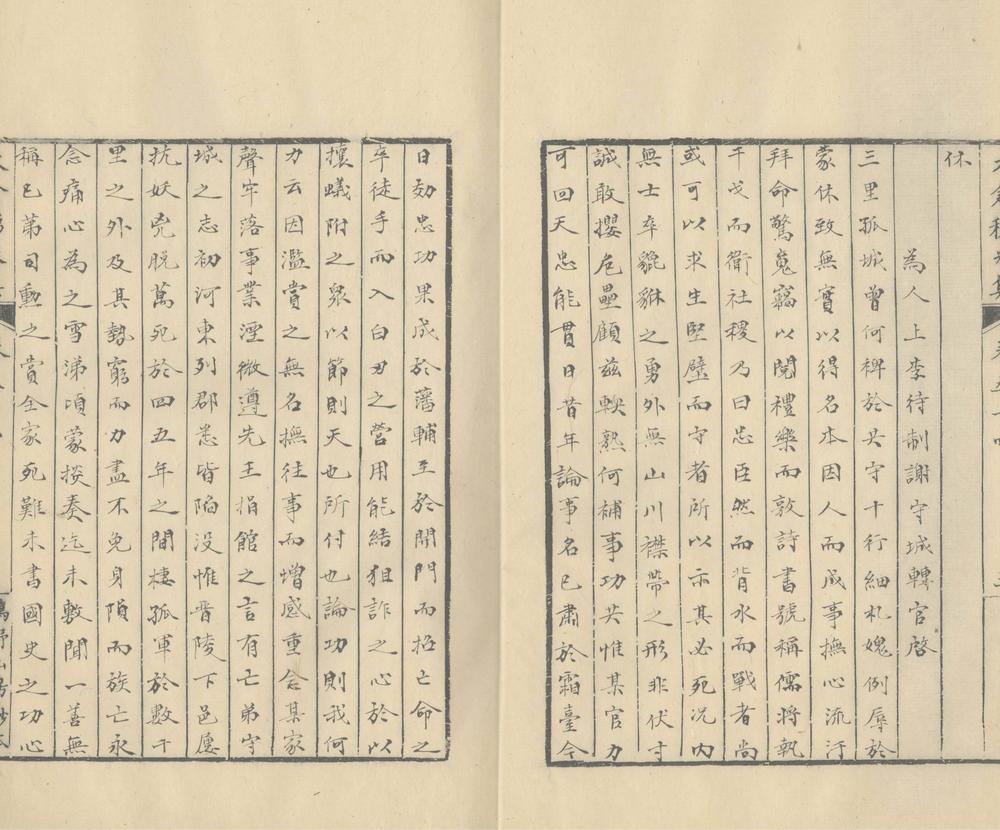 休
為人上李待制謝守城轉官啓
三里孤城曾何裨於共守十行細札媿例辱於
蒙休致無實以得名本因人而成事撫心流汗
拜命驚䰟竊以閱禮樂而敦詩書號稱儒將執
干戈而衛社稷乃曰忠臣然而背水而戰者尚
或可以求生堅壁而守者所以示其必死况内
無士卒貔貅之勇外無山川襟帶之形非伏寸
誠敢攖危壘顧兹軼熟何補事功共惟某官力
可回天忠能貫日昔年論事名已肅於霜臺今
日効忠功果成於藩輔至於開門而招亡命之
卒徒手而入白刃之營用能結狙詐之心於以
攘蟻附之衆以節則天也所付也論功則我何
力云因濫賞之無名撫往事而增感重念某家
聲牢落事業湮微遵先王捐館之言有亡弟守
城之志初河東列郡悉皆陷没惟晋陵下邑屢
抗妖兇脱萬死於四五年之間棲孤軍於數千
里之外及其勢窮而力盡不免身隕而族亡永
念痛心為之雪涕頃蒙掞奏迄未敷聞一善無
稱已第司勳之賞全家死難未書國史之功心